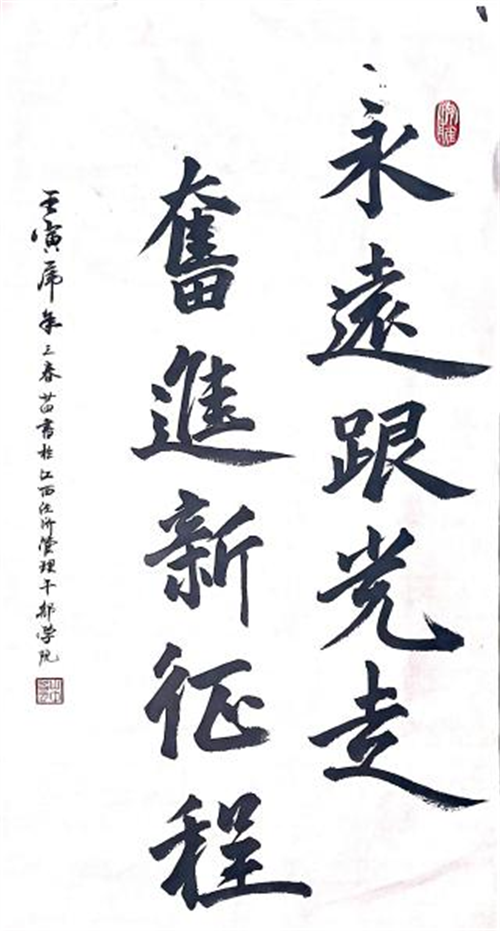 永遠跟党走
奮進新征程
壬寅虎年三春苗書於江西经济管理干部学院